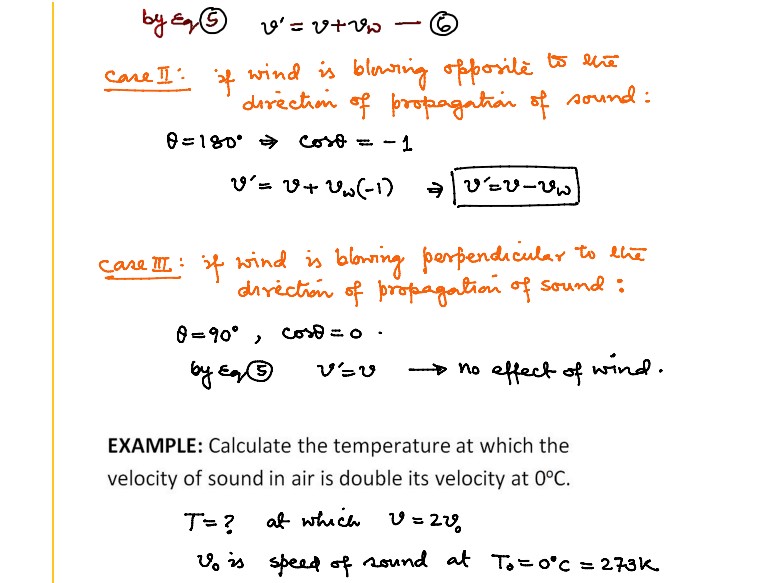 by Eq ⑤ v' = v + v_w — ⑥
Case II: if wind is blowing opposite to the
direction of propagation of sound:
θ = 180° ⇒ cosθ = -1
v' = v + v_w(-1) ⇒ v' = v - v_w
Case III: if wind is blowing perpendicular to the
direction of propagation of sound:
θ = 90°, cosθ = 0.
by Eq ⑤ v' = v → no effect of wind.
EXAMPLE: Calculate the temperature at which the
velocity of sound in air is double its velocity at 0°C.
T = ? at which v = 2v₀
v₀ is speed of sound at T₀ = 0°C = 273K